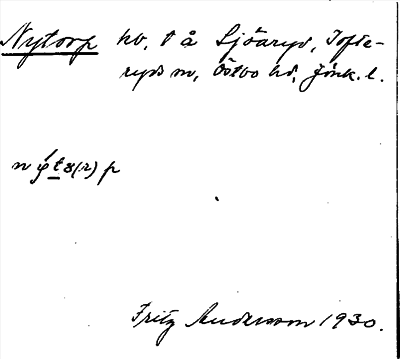 Nytorp kv, t å Sjöaryd, Tofte-
ryds sn, Östbo hd, Jönk. l.
Fritz Andersson 1930.